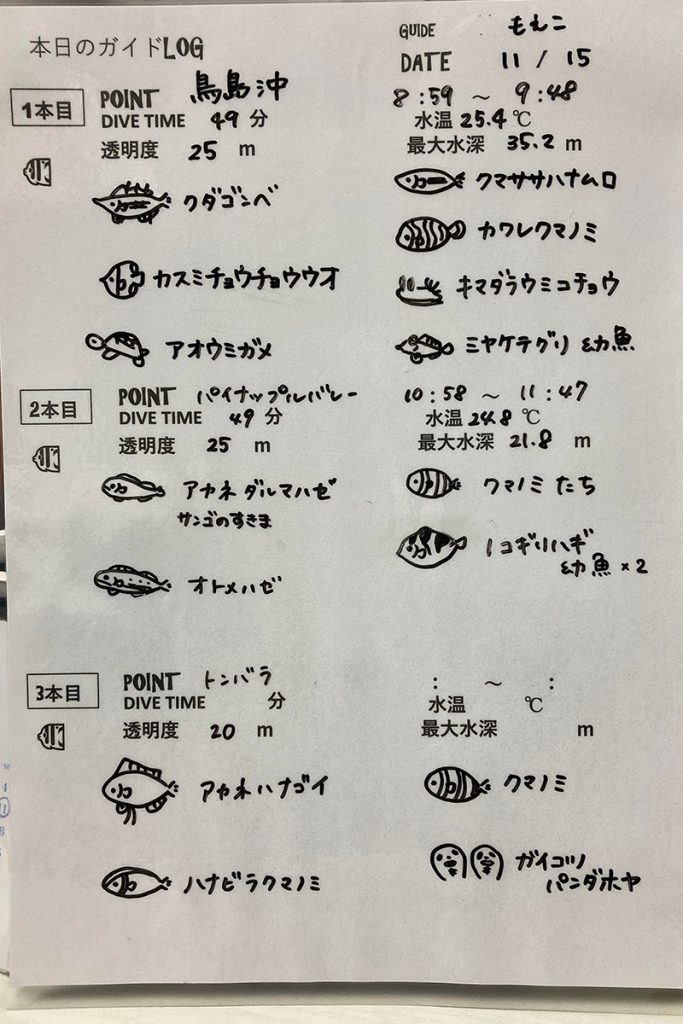 本日のガイドLOG
GUIDE もえこ
DATE 11 / 15
1本目
POINT 鳥島沖
8:59 ~ 9:48
DIVE TIME 49 分
水温 25.4 ℃
透明度 25 m
最大水深 35.2 m
クダゴンベ
クマササハナムロ
カスミチョウチョウウオ
カクレクマノミ
アオウミガメ
キマダラウミコチョウ
ミヤケテグリ 幼魚
2本目
POINT パイナップルバレー
10:58 ~ 11:47
DIVE TIME 49 分
水温 24.8 ℃
透明度 25 m
最大水深 21.8 m
アヤネダルマハゼ
サンゴのすきま
クマノミたち
オトメハゼ
ノコギリハギ
幼魚×2
3本目
POINT トンバラ
: ~ :
DIVE TIME 分
水温 ℃
透明度 20 m
最大水深 m
アカネハナゴイ
クマノミ
ハナビラクマノミ
ガイコツ
パンダホヤ